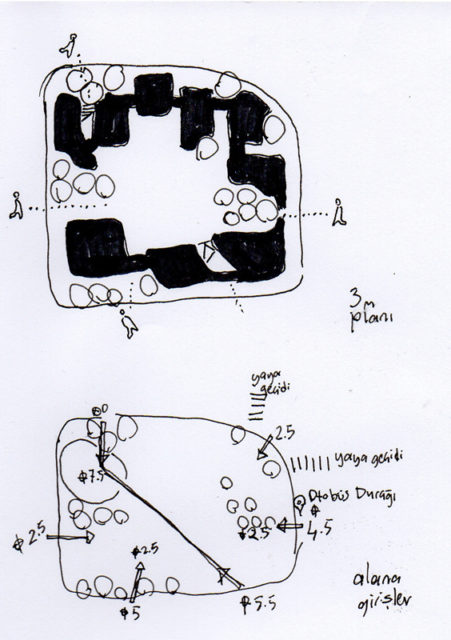 3m
planı
yaya
geçidi
2.5
yaya geçidi
7.5
Otobüs Durağı
2.5
2.5
4.5
2.5
5
5.5
alana
girişler